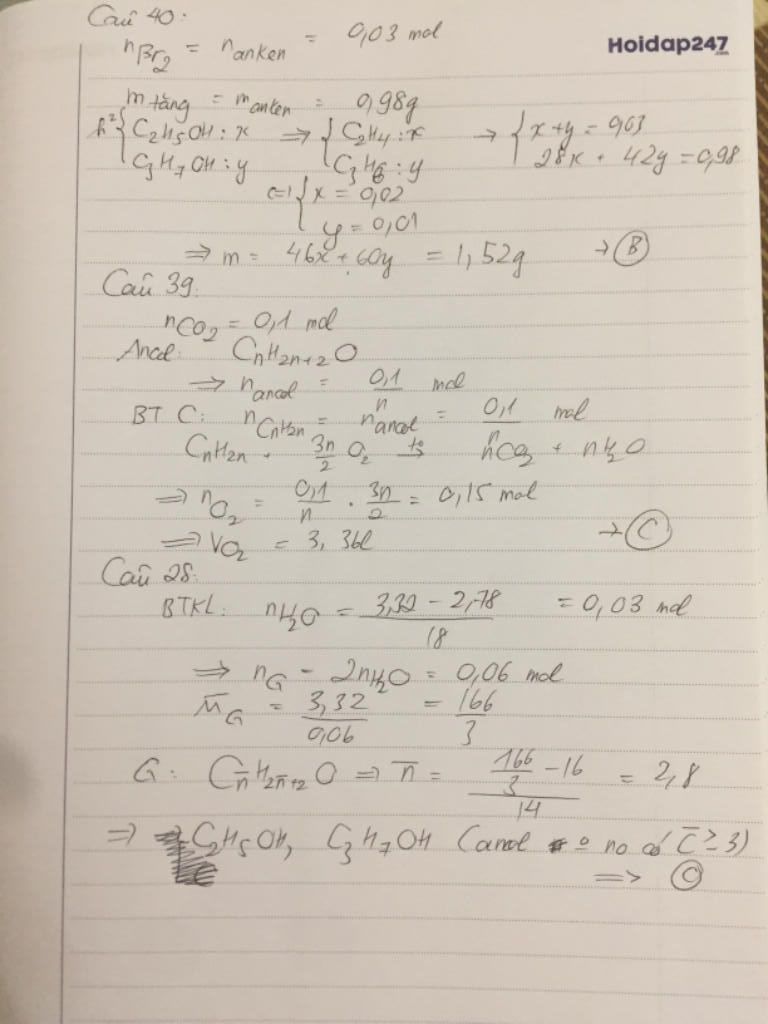 Câu 40:
nBr2 = nanken = 0,03 mol
Hoidap247.com
m tăng = manken = 0,98g
h² { C2H5OH : x ⇒ { C2H4 : x → { x + y = 0,03
C3H7OH : y C3H6 : y 28x + 42y = 0,98
{ x = 0,02
y = 0,01
⇒ m = 46x + 60y = 1,52g → B
Câu 39:
nCO2 = 0,1 mol
Ancol: CnH2n+2O
⇒ nancol = 0,1/n mol
BT C: nCnH2n = nancol = 0,1/n mol
CnH2n + 3n/2 O2 t° → nCO2 + nH2O
⇒ nO2 = 0,1/n . 3n/2 = 0,15 mol
⇒ VO2 = 3,36l → C
Câu 28:
BTKL: nH2O = (3,32 - 2,78)/18 = 0,03 mol
⇒ nG = 2nH2O = 0,06 mol
M̄G = 3,32/0,06 = 166/3
G: Cn̄H2n̄+2O ⇒ n̄ = (166/3 - 16)/14 = 2,8
⇒ C2H5OH, C3H7OH (ancol no có C ≥ 3)
⇒ C